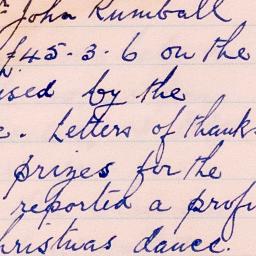 John Rumball
£45-3-6 on the
ised by the
e. Letters of thanks
prizes for the
reported a profi
hristmas dance.